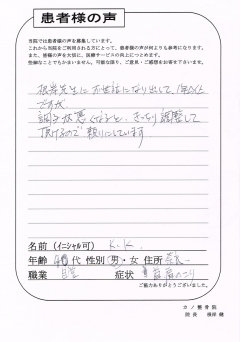 患者様の声
当院では患者様の声を募集しています。
これから当院をご利用される方にとって、患者様の声が何よりも参考になります。
また、皆様の声を大切に、医療サービスの向上につとめます。
些細なことでもかまいません。可能な限り、ご意見・ご感想をお寄せ下さいませ。
根岸先生にお世話になり出して1年以上
ですが
調子状態悪くなると、きっちり調整して
頂けるので頼りにしています
名前(イニシャル可) K.K.
年齢 40代 性別 男・女 住所
職業 自営 症状 首肩のこり
ご協力ありがとうございました。
カノ整骨院
院長 根岸